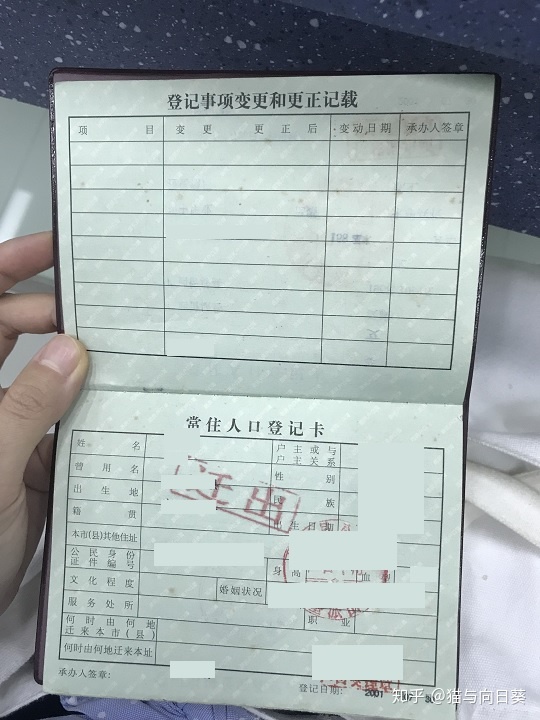 登记事项变更和更正记载
项 目 变 更 更 正 后 变动日期 承办人签章
常住人口登记卡
姓 名 户主或与户主关系
曾用名 性 别
出生地 民 族
籍 贯 出生日期
本市(县)其他住址
公民身份证件编号 身 高 血型
文化程度 婚姻状况
服务处所 职 业
何时由何地迁来本市(县)
何时由何地迁来本址
承办人签章: 登记日期: 2001
知乎 @猫与向日葵